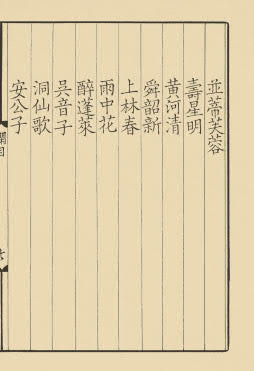 並蒂芙蓉
壽星明
黃河清
舜韶新
上林春
雨中花
醉蓬萊
吳音子
洞仙歌
安公子